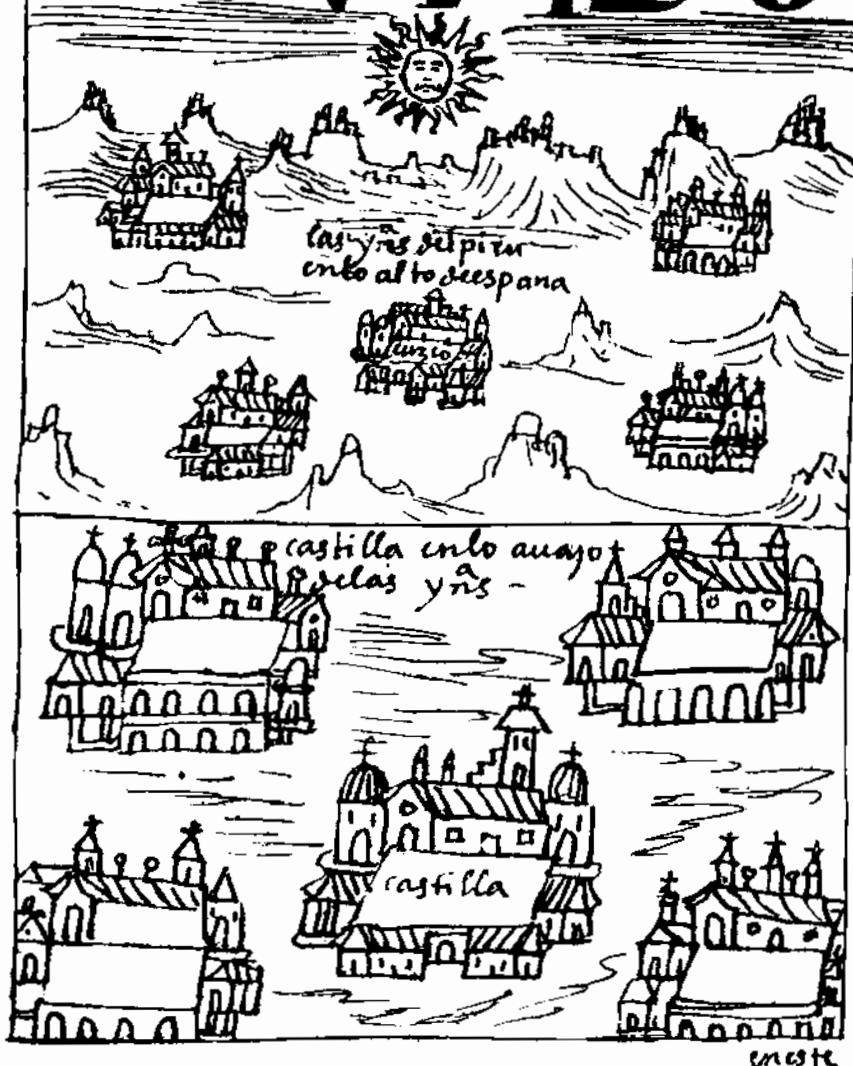 las yñªs del piru
enlo alto deespana
cuzco
castilla enlo auajo
delas yñªs -
castilla
eneste